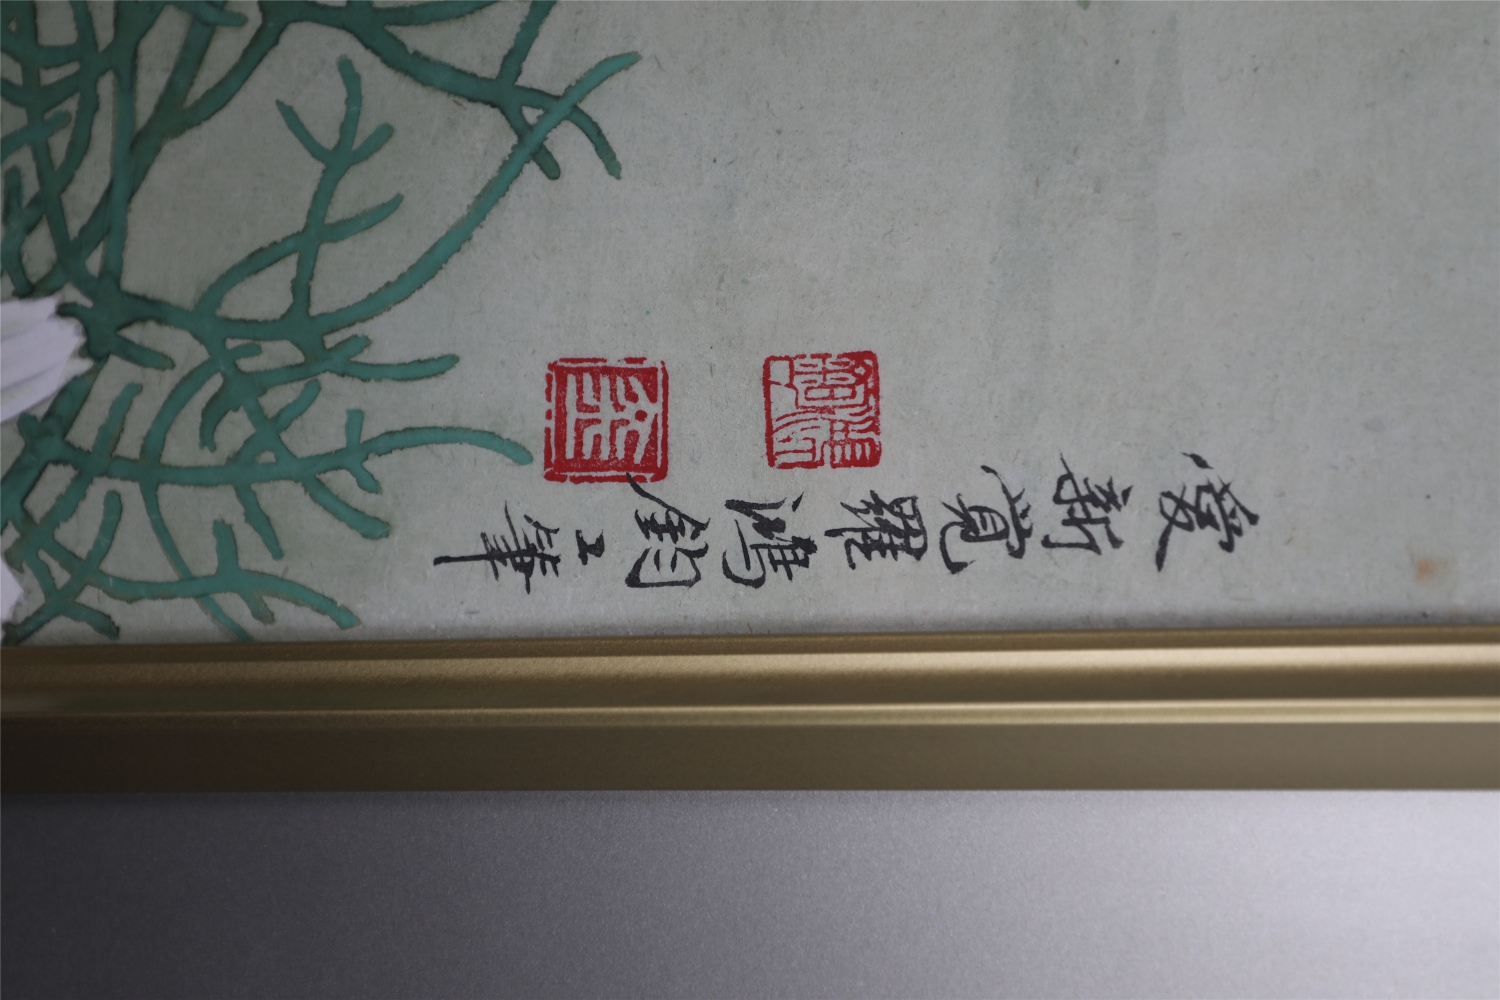 愛新覺羅鴻鈞工筆